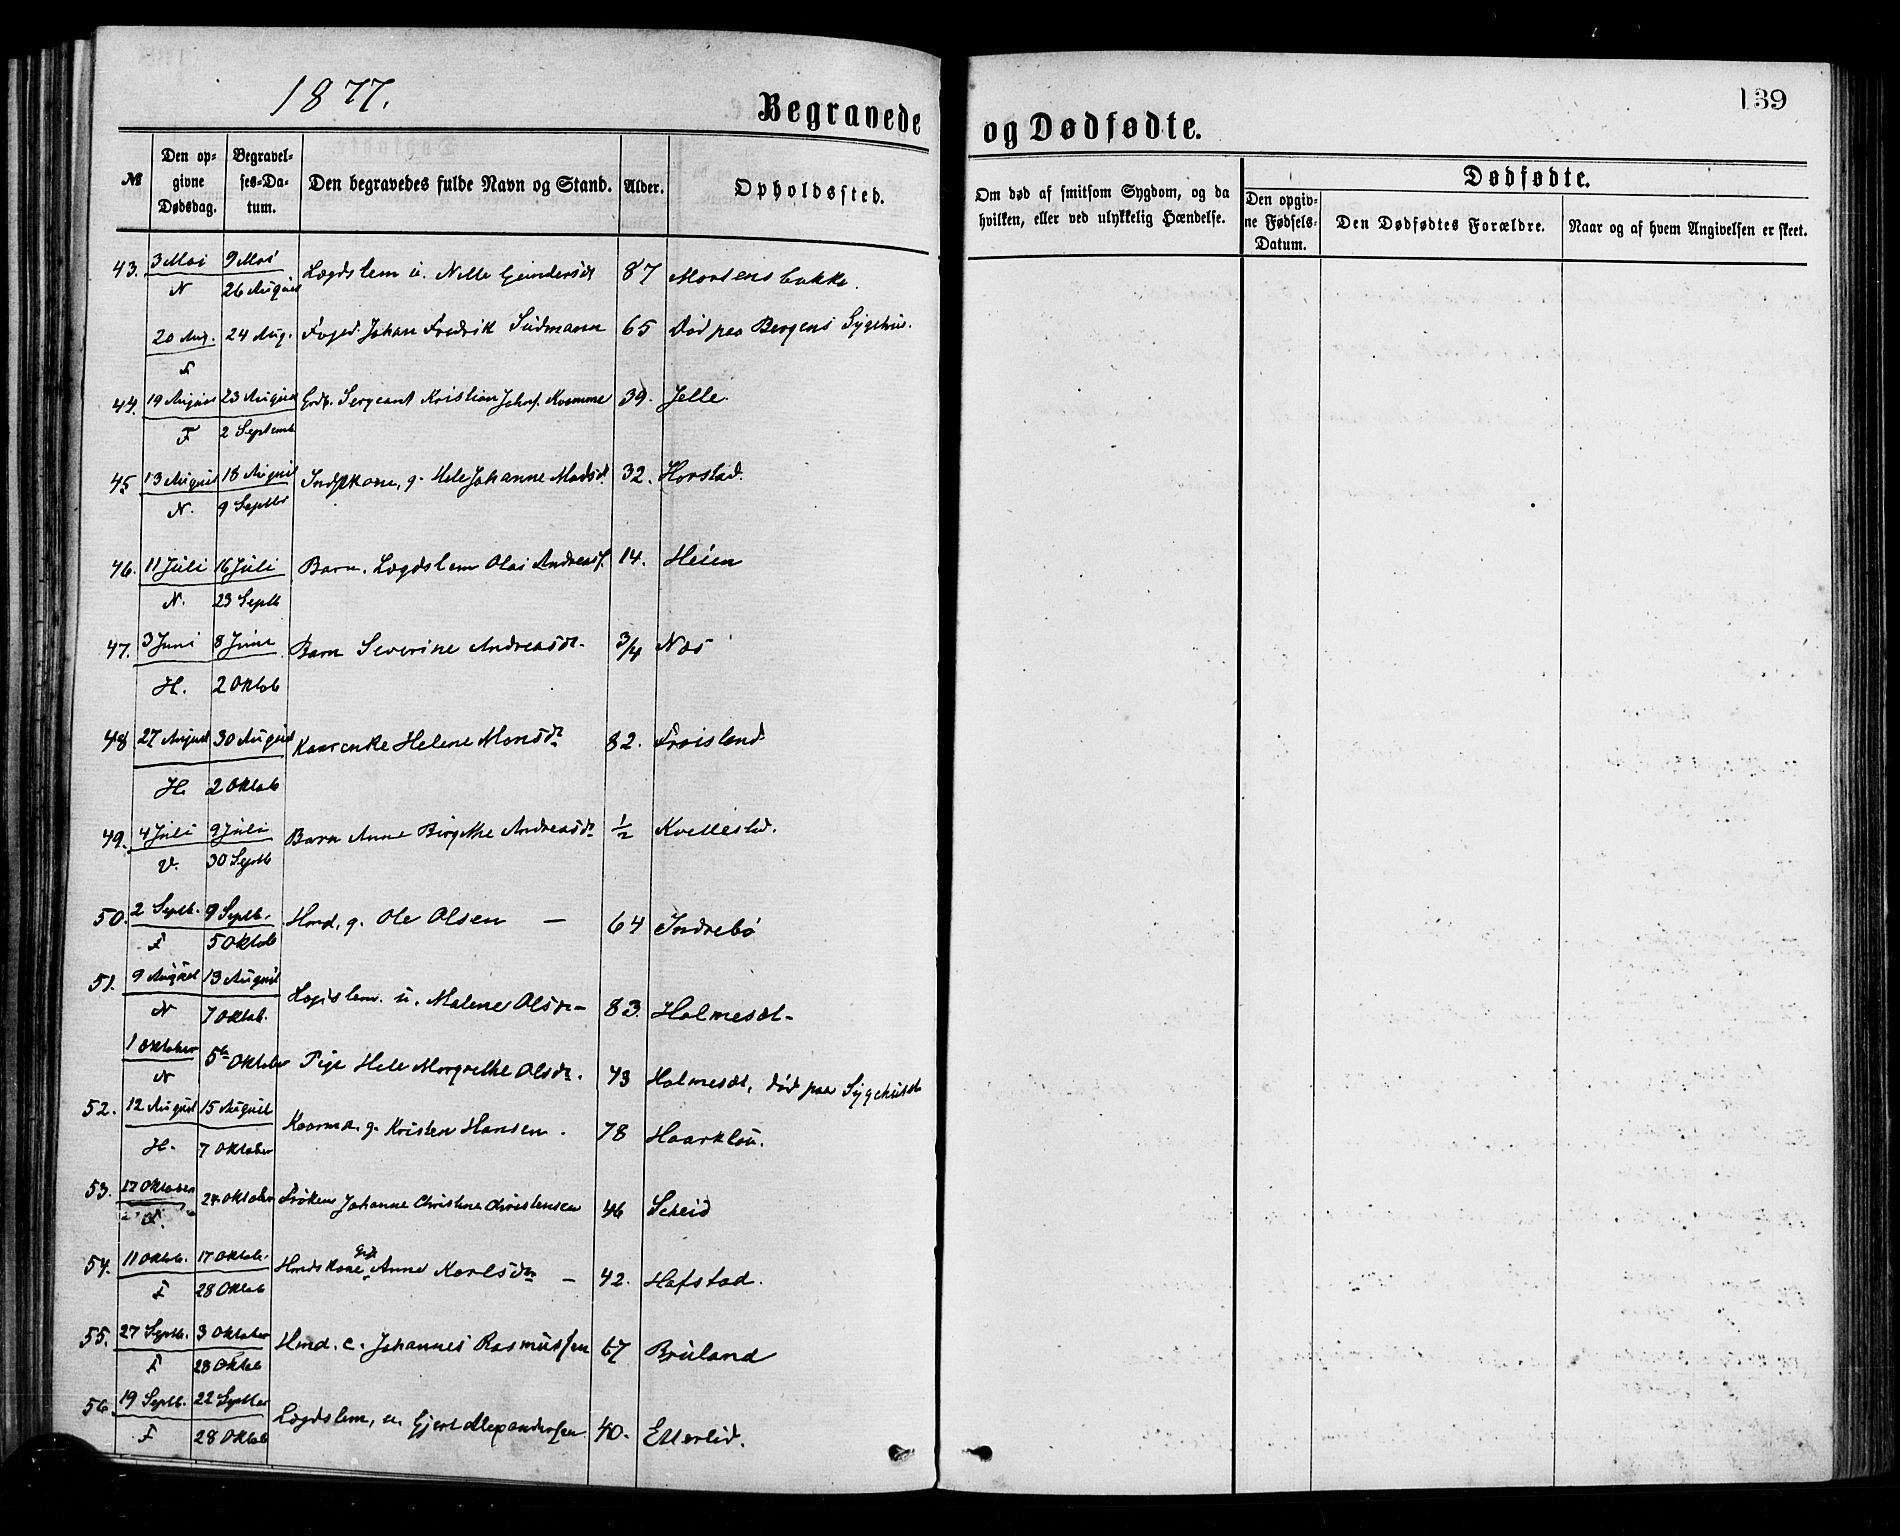 1877.
Begravede
og Dødfødte.
139
№
Den opgivne Dødsdag.
Begravelses-Datum.
Den begravedes fulde Navn og Stand.
Alder.
Opholdssted.
Om død af smitsom Sygdom, og da hvilken, eller ved ulykkelig Hændelse.
Dødfødte.
Den opgivne Fødsels-Datum.
Den Dødfødtes Forældre.
Naar og af hvem Angivelsen er skeet.
43. 3 Mai 9 Mai Lægdslem u. Nille Gundersdt 87 Mortensbakke.
N 26 August
20 Aug. 24 Aug. Foged Johan Fredrik Südmann 65 Død paa Bergens Sygehus.
F
44. 19 August 23 August Grdb. Sergeant Kristian Johns. Kvamme 39. Jelle.
F 2 Septemb
45 13 August 18 August Indstkone, g. Hele Johanne Madsdt 32. Horstad.
N. 9 Septb
46. 11 Juli 16 Juli Barn. Lægdslem Olai Andreass. 14. Heien
N. 23 Septb
47. 3 Juni 8 Juni Barn Severine Andreasdt. 3/4 Nes
H. 2 Oktob
48 27 August 30 August Kaarenke Helene Monsdt 82. Frøisland
H. 2 Oktob
49. 4 Juli 9 Juli Barn Anne Birgithe Andreasdt 1/2 Kvellestad.
V. 30 Septb
50. 2 Septb. 9 Septb. Hmd, g. Ole Olsen — 64 Indrebø
F 5 Oktob
51. 9 August 13 August Lægdslem. u. Malene Olsdt — 83. Holmesæt-
N 7 Oktob.
1 Oktober 5te Oktober Pige Hele Margrethe Olsdt. 43 Holmesæt, død paa Sygehuset
N
52. 12 August 15 August Kaarma. g. Kristen Hansen. 78 Haarklou.
H. 7 Oktober
53. 17 Oktober 24 Oktober Frøken Johanne Christine Christensen 46 Scheid
F.
54. 11 Oktob. 17 Oktob. Hmdskone, Anne Karlsdt — 42. Hafstad.
F 28 Oktob
55. 27 Septb. 3 Oktober Hmd. e. Johannes Rasmussen 67 Bruland
F 28 Oktob
56. 19 Septb. 22 Septber Lægdslem, u. Gjert Alexandersen 40. Etterlid.
F 28 Oktob